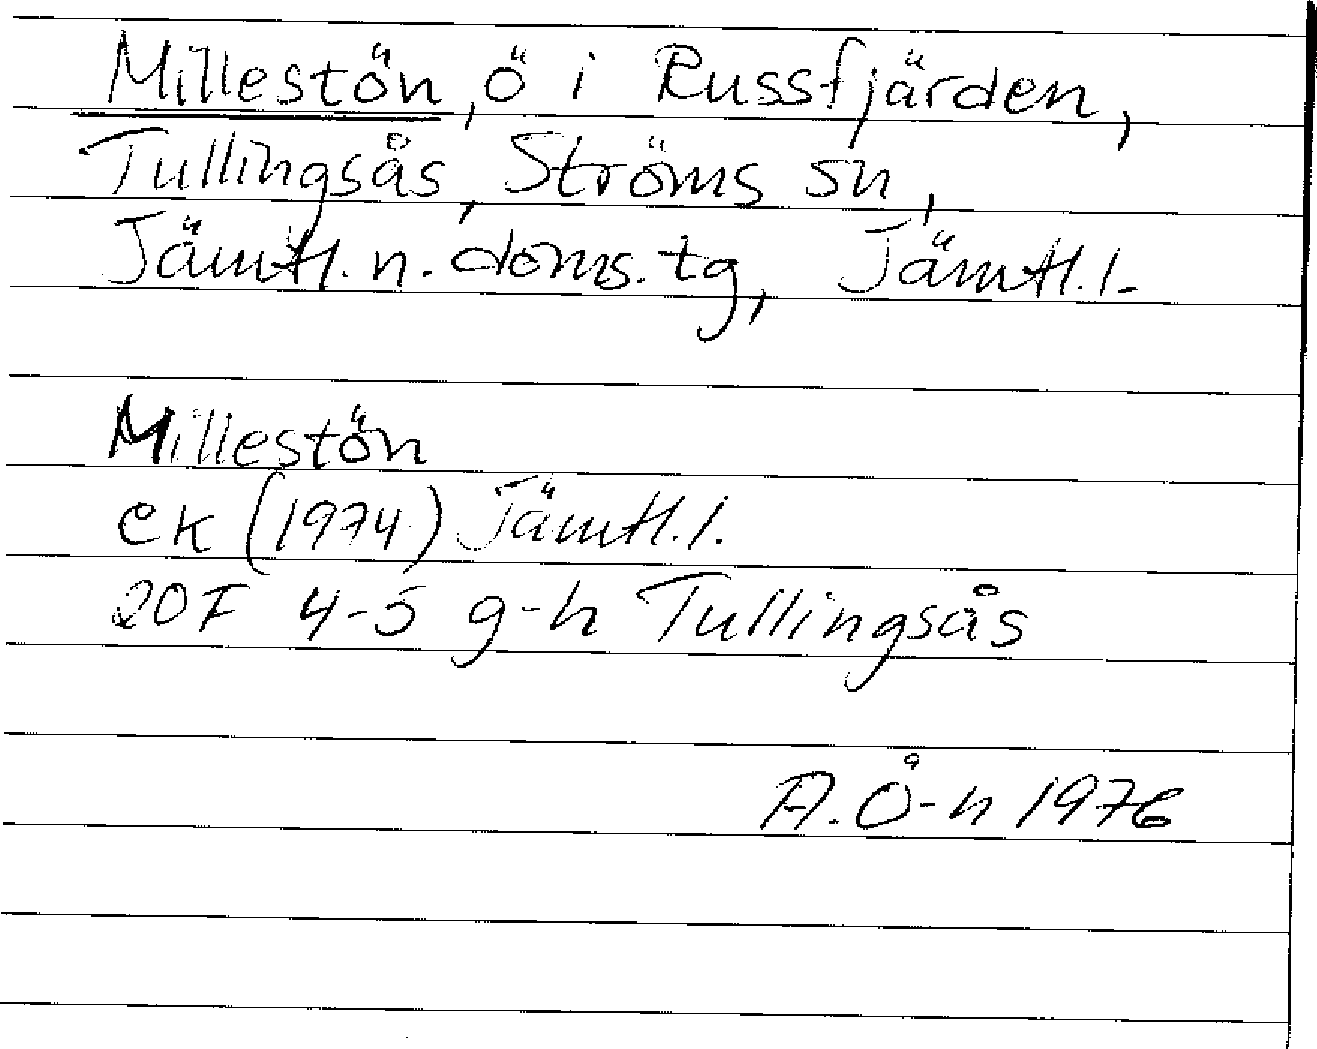 Millestön, ö i Russfjärden,
Tullingsås, Ströms sn,
Jämtl. n. doms. tg, Jämtl. l.
Millestön
ek (1974) Jämtl. l.
20F 4-5 g-h Tullingsås
A. Ö-n 1976